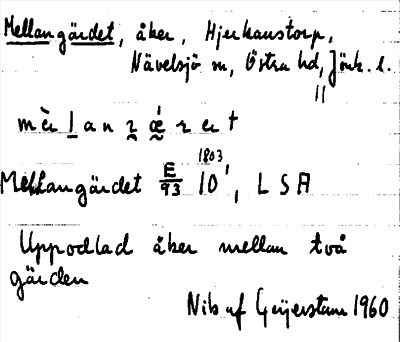 Mellangärdet, åker, Hjerkanstorp,
Nävelsjö sn, Östra hd, Jönk. l.
Mellangärdet E/93 10 1803, L S A
Uppodlad åker mellan två
gärden
Nils af Geijerstam 1960